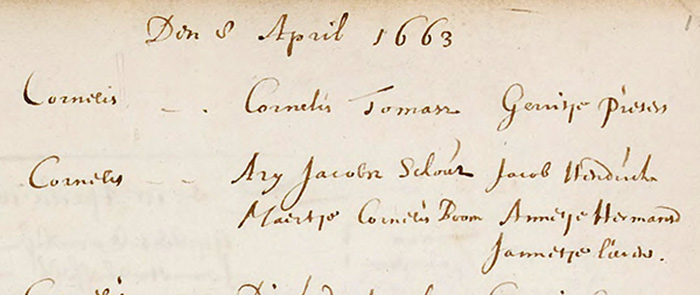 Den 8 April 1663
Cornelis - . Cornelis Tomasz Gerritje Pieters
Cornelis - - Ary Jacobsz Schout Jacob
Maertje Cornelis Boom Annetje Hermans
Jannetje